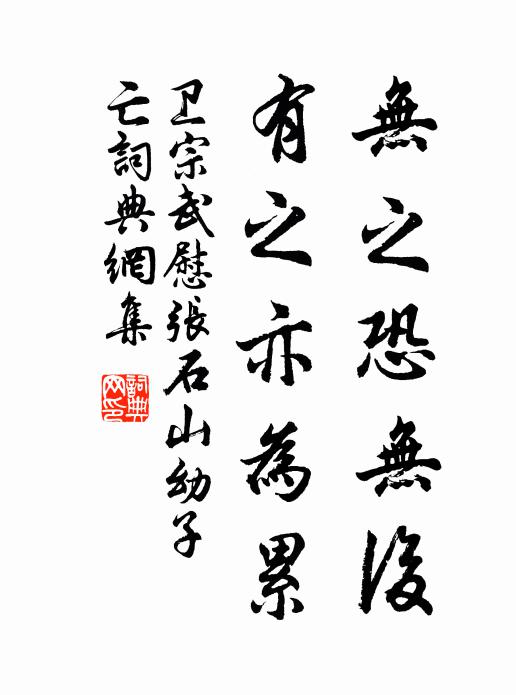 無之恐無後
有之亦為累
卫宗武慰張石山幼子
亡詞典網集
詞典網印